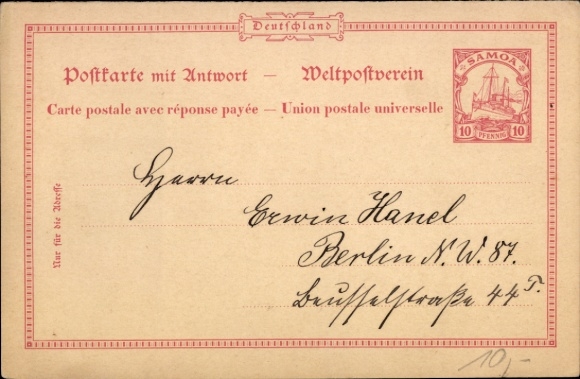 Deutschland
Postkarte mit Antwort — Weltpostverein
Carte postale avec réponse payée — Union postale universelle
SAMOA
10 PFENNIG 10
Nur für die Adresse
Herrn
Erwin Hanel
Berlin N.W. 87.
Beusselstraße 44 T.
10,-